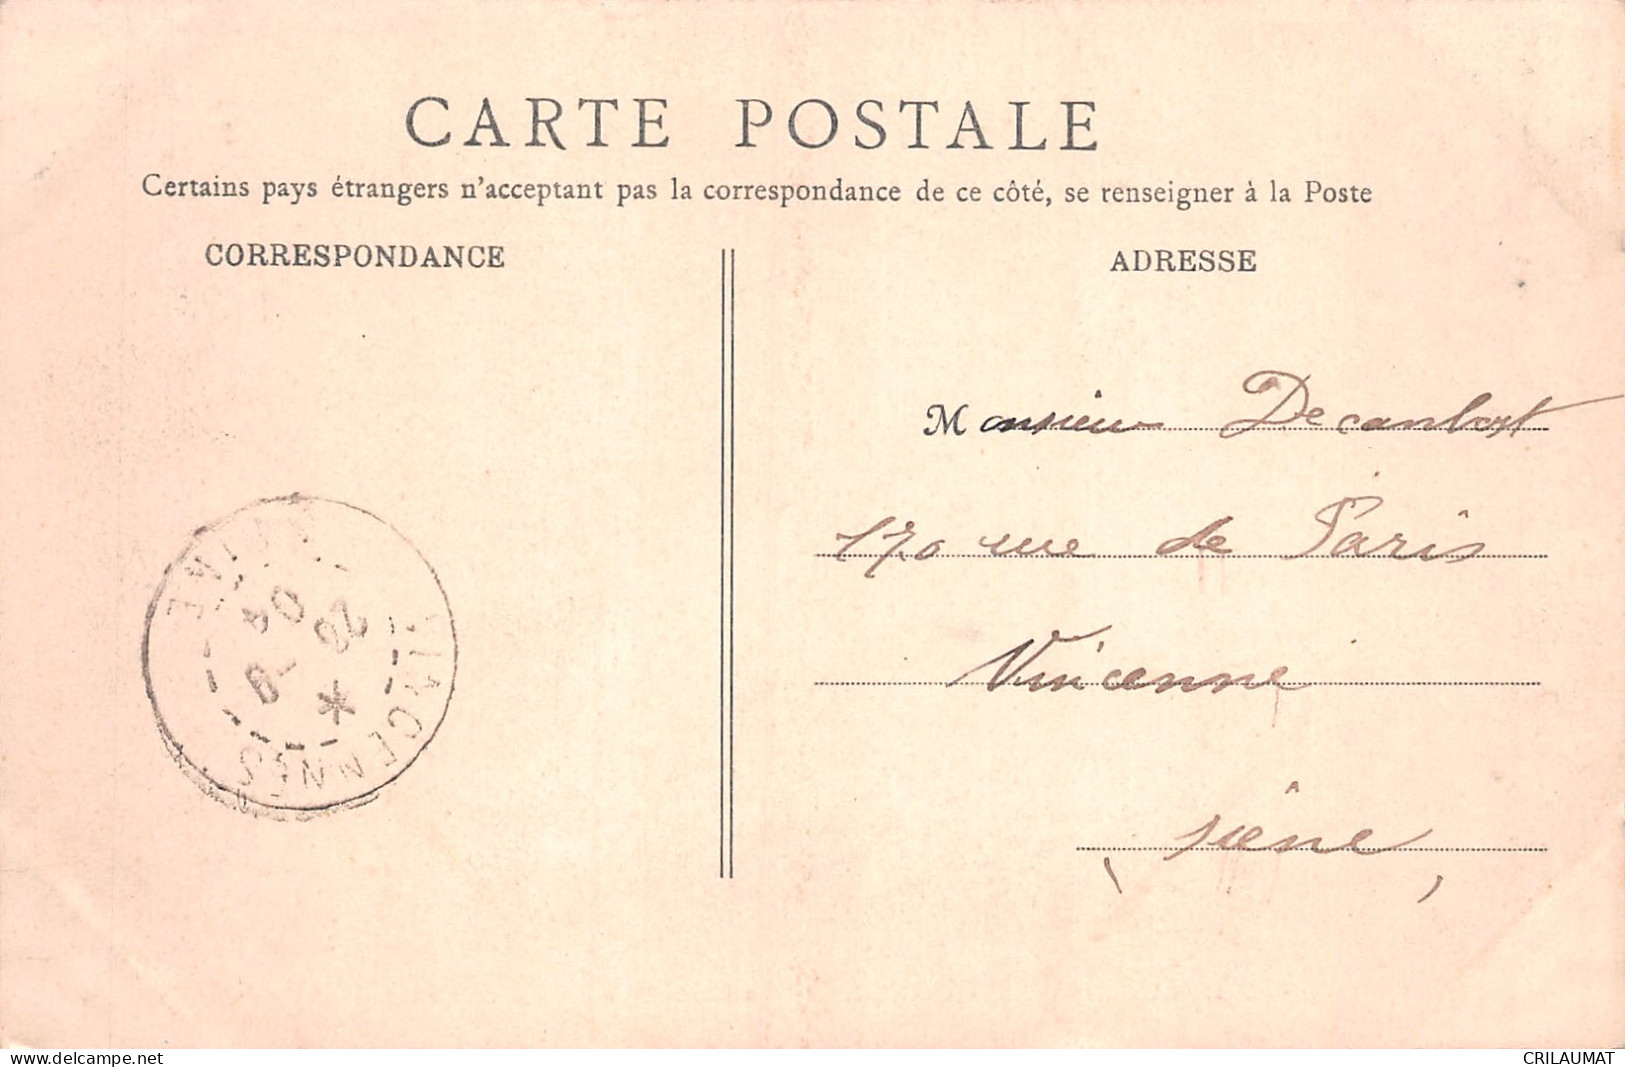 CARTE POSTALE
Certains pays étrangers n'acceptant pas la correspondance de ce côté, se renseigner à la Poste
CORRESPONDANCE
ADRESSE
Monsieur
170 rue de Paris
Vincenne
siène
VINCENNES
SEINE
04
delcampe.net
CRILAUMAT